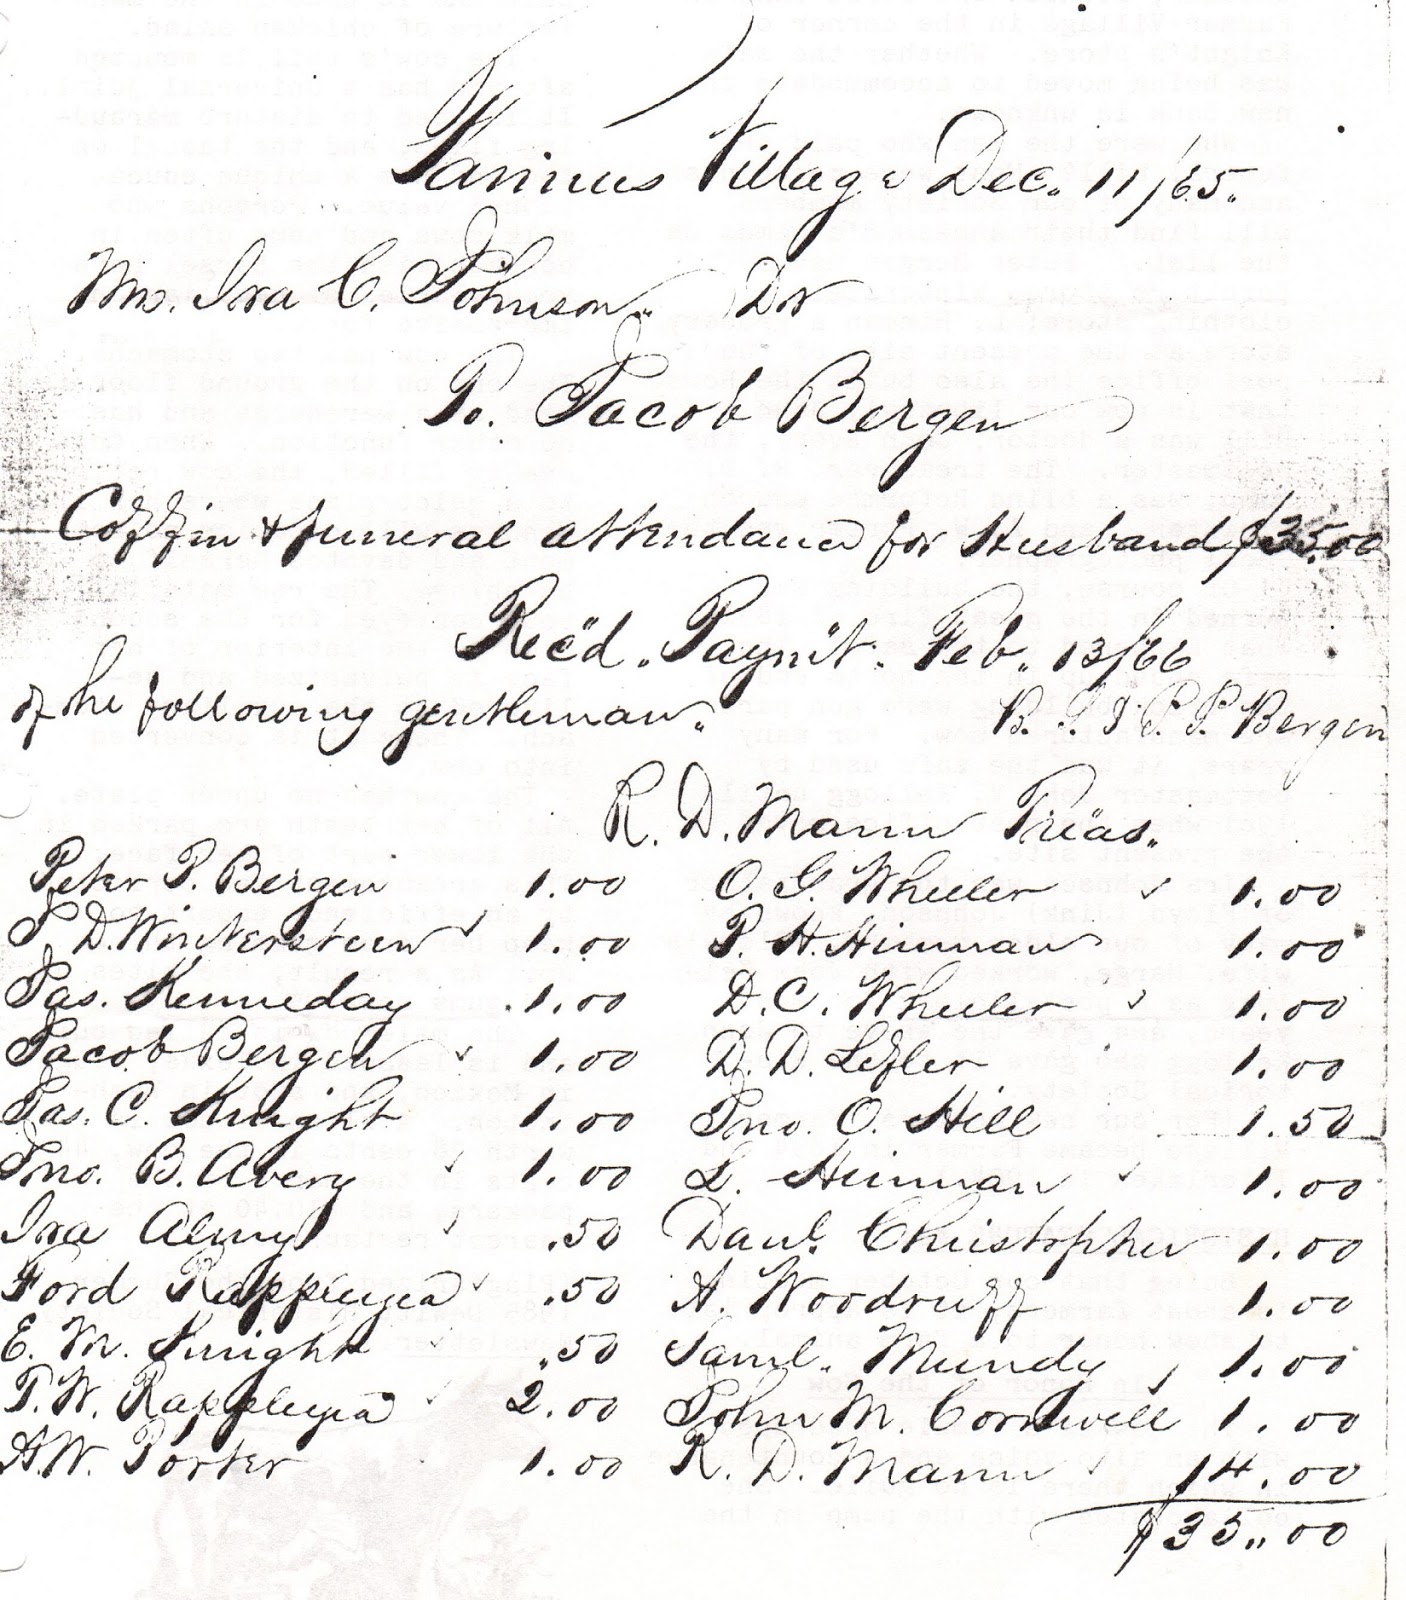 Farmers Village Dec. 11/65.
Mrs. Ira C. Johnson. Dr
To. Jacob Bergen
Coffin & funeral attendance for Husband $35.00
Rec'd. Paym't. Feb. 13/66
of the following gentleman. B. & P. P. Bergen
R. D. Mann Treas.
Peter P. Bergen 1.00 O. G. Wheeler 1.00
J D. Wintersteen 1.00 P. H. Hinman 1.00
Jas. Kenneday 1.00 D. C. Wheeler 1.00
Jacob Bergen 1.00 D. D. Lefler 1.00
Jas. C. Knight 1.00 Jno. O. Hill 1.50
Jno. B. Avery 1.00 L. Hinman 1.00
Ira Almy .50 Danl. Christopher 1.00
Ford Rappleyea .50 A. Woodruff 1.00
E. M. Knight .50 Saml. Mundy 1.00
P. W. Rappleyea 2.00 John M. Cornwell 1.00
A. W. Porter 1.00 R. D. Mann 14.00
$35.00